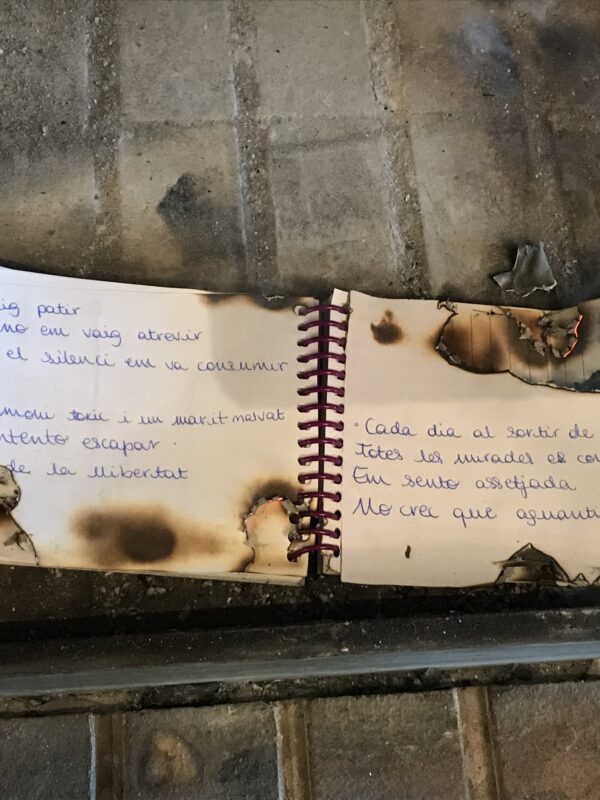 ig patir
no em vaig atrevir
el silenci em va consumir
món tòxic i un marit malvat
ntento escapar.
de la llibertat
Cada dia al sortir de
totes les mirades es co
Em sento assetjada
No crec que aguanti